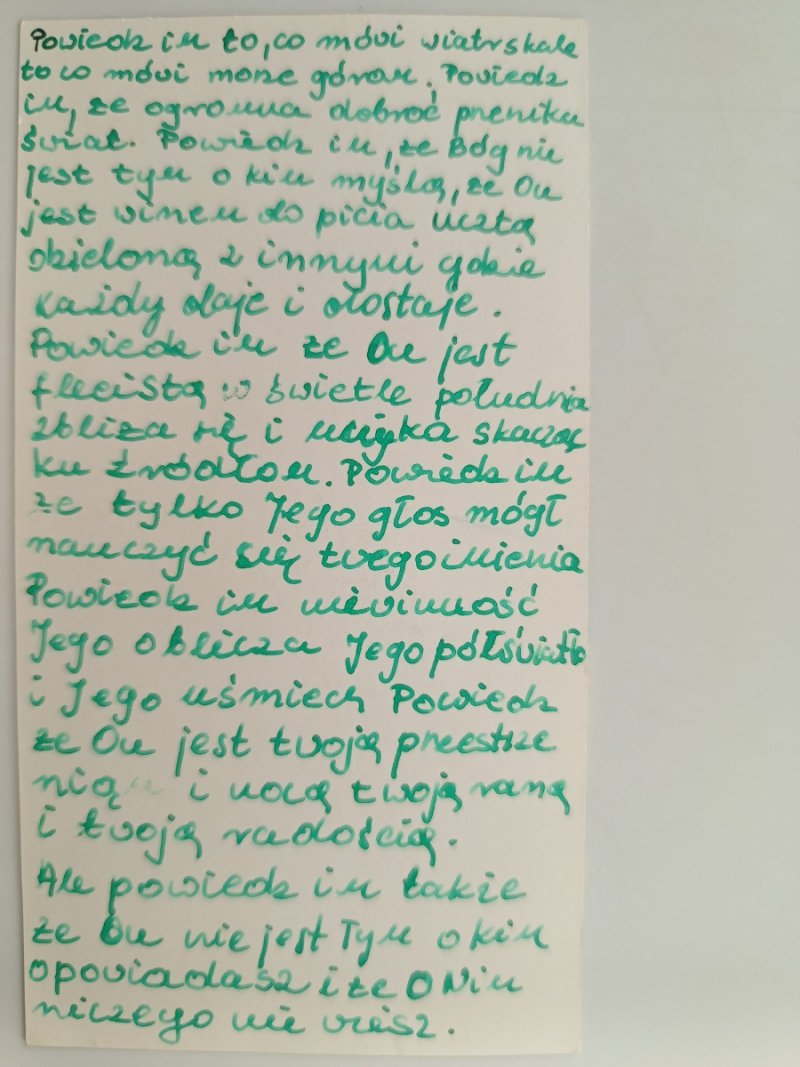 Powiedz im to, co mówi wiatr skale
to co mówi morze górom. Powiedz
im, że ogromna dobroć przenika
świat. Powiedz im, że Bóg nie
jest tym o kim myślą, że On
jest winem do picia ucztą
dzieloną z innymi gdzie
każdy daje i dostaje.
Powiedz im że On jest
flecistą w świetle południa
zbliza się i ucieka skacząc
ku źródłom. Powiedz im
że tylko Jego głos mógł
nauczyć się twego imienia
Powiedz im niewinność
Jego oblicza Jego półświatło
i Jego uśmiech Powiedz
że On jest twoją przestrze
nią i nocą twoją raną
i twoją radością.
Ale powiedz im także
że On nie jest Tym o kim
opowiadasz i że O Nim
niczego nie wiesz.